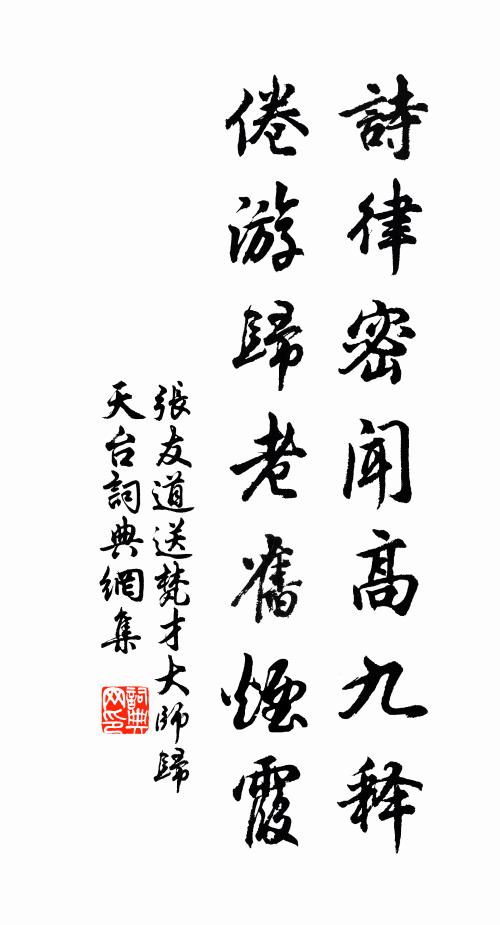 詩律密聞高九释
倦游歸老舊煙霞
張友道送梵才大師歸
天台詞典網集
詞典网印